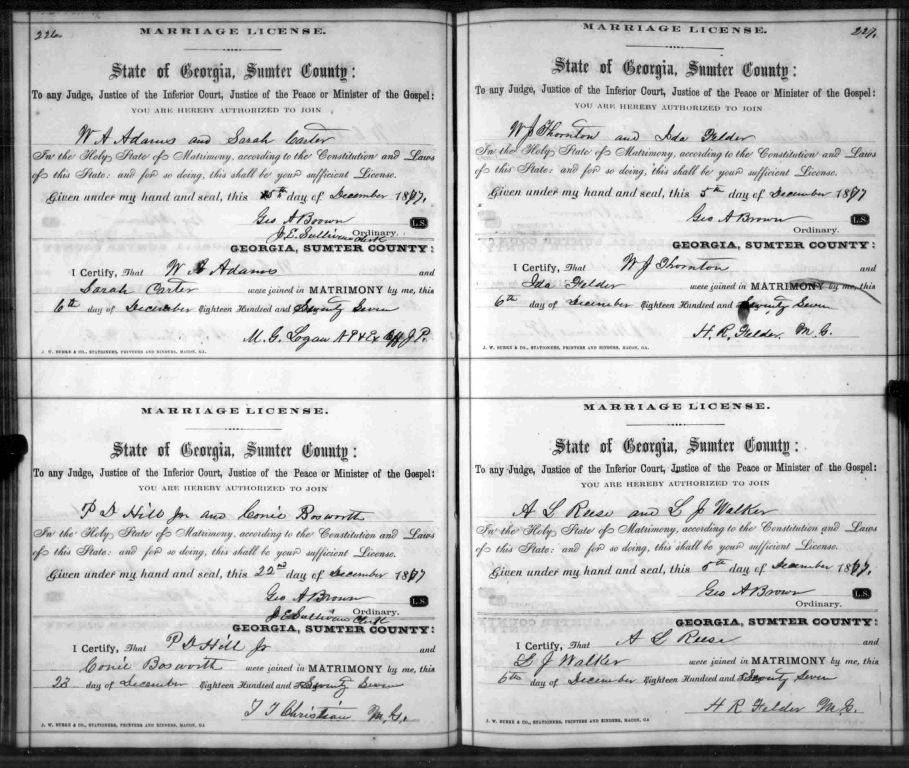 226.
MARRIAGE LICENSE.
State of Georgia, Sumter County:
To any Judge, Justice of the Inferior Court, Justice of the Peace or Minister of the Gospel:
YOU ARE HEREBY AUTHORIZED TO JOIN
W A Adams and Sarah Carter
In the Holy State of Matrimony, according to the Constitution and Laws
of this State: and for so doing, this shall be your sufficient License.
Given under my hand and seal, this 5th day of December 1877,
Geo A Brown L.S.
Ordinary.
J. E. Sullivan Clerk
GEORGIA, SUMTER COUNTY:
I Certify, That W A Adams and
Sarah Carter were joined in MATRIMONY by me, this
6th day of December Eighteen Hundred and Seventy Seven
M. G. Logan N P & Ex Off J P.
J. W. BURKE & CO., STATIONERS, PRINTERS AND BINDERS, MACON, GA.
MARRIAGE LICENSE.
State of Georgia, Sumter County:
To any Judge, Justice of the Inferior Court, Justice of the Peace or Minister of the Gospel:
YOU ARE HEREBY AUTHORIZED TO JOIN
P D Hill Jr and Conie Bosworth
In the Holy State of Matrimony, according to the Constitution and Laws
of this State: and for so doing, this shall be your sufficient License.
Given under my hand and seal, this 22nd day of December 1877
Geo A Brown L.S.
Ordinary.
J E Sullivan Clerk
GEORGIA, SUMTER COUNTY:
I Certify, That P D Hill Jr and
Conie Bosworth were joined in MATRIMONY by me, this
23 day of December Eighteen Hundred and Seventy Seven
T T Christian M. G.
J. W. BURKE & CO., STATIONERS, PRINTERS AND BINDERS, MACON, GA
227.
MARRIAGE LICENSE.
State of Georgia, Sumter County:
To any Judge, Justice of the Inferior Court, Justice of the Peace or Minister of the Gospel:
YOU ARE HEREBY AUTHORIZED TO JOIN
W J Thornton and Ida Felder
In the Holy State of Matrimony, according to the Constitution and Laws
of this State: and for so doing, this shall be your sufficient License.
Given under my hand and seal, this 5th day of December 1877
Geo A Brown L.S.
Ordinary.
GEORGIA, SUMTER COUNTY:
I Certify, That W J Thornton and
Ida Felder were joined in MATRIMONY by me, this
6th day of December Eighteen Hundred and Seventy Seven
H. R. Felder. M. G.
J. W. BURKE & CO., STATIONERS, PRINTERS AND BINDERS, MACON, GA.
MARRIAGE LICENSE.
State of Georgia, Sumter County:
To any Judge, Justice of the Inferior Court, Justice of the Peace or Minister of the Gospel:
YOU ARE HEREBY AUTHORIZED TO JOIN
A L Reese and L J Walker
In the Holy State of Matrimony, according to the Constitution and Laws
of this State: and for so doing, this shall be your sufficient License.
Given under my hand and seal, this 5th day of December 1877,
Geo A Brown L.S.
Ordinary.
GEORGIA, SUMTER COUNTY:
I Certify, That A L Reese and
L J Walker were joined in MATRIMONY by me, this
6th day of December Eighteen Hundred and Seventy Seven
H R Felder M. G.
J. W. BURKE & CO., STATIONERS, PRINTERS AND BINDERS, MACON, GA